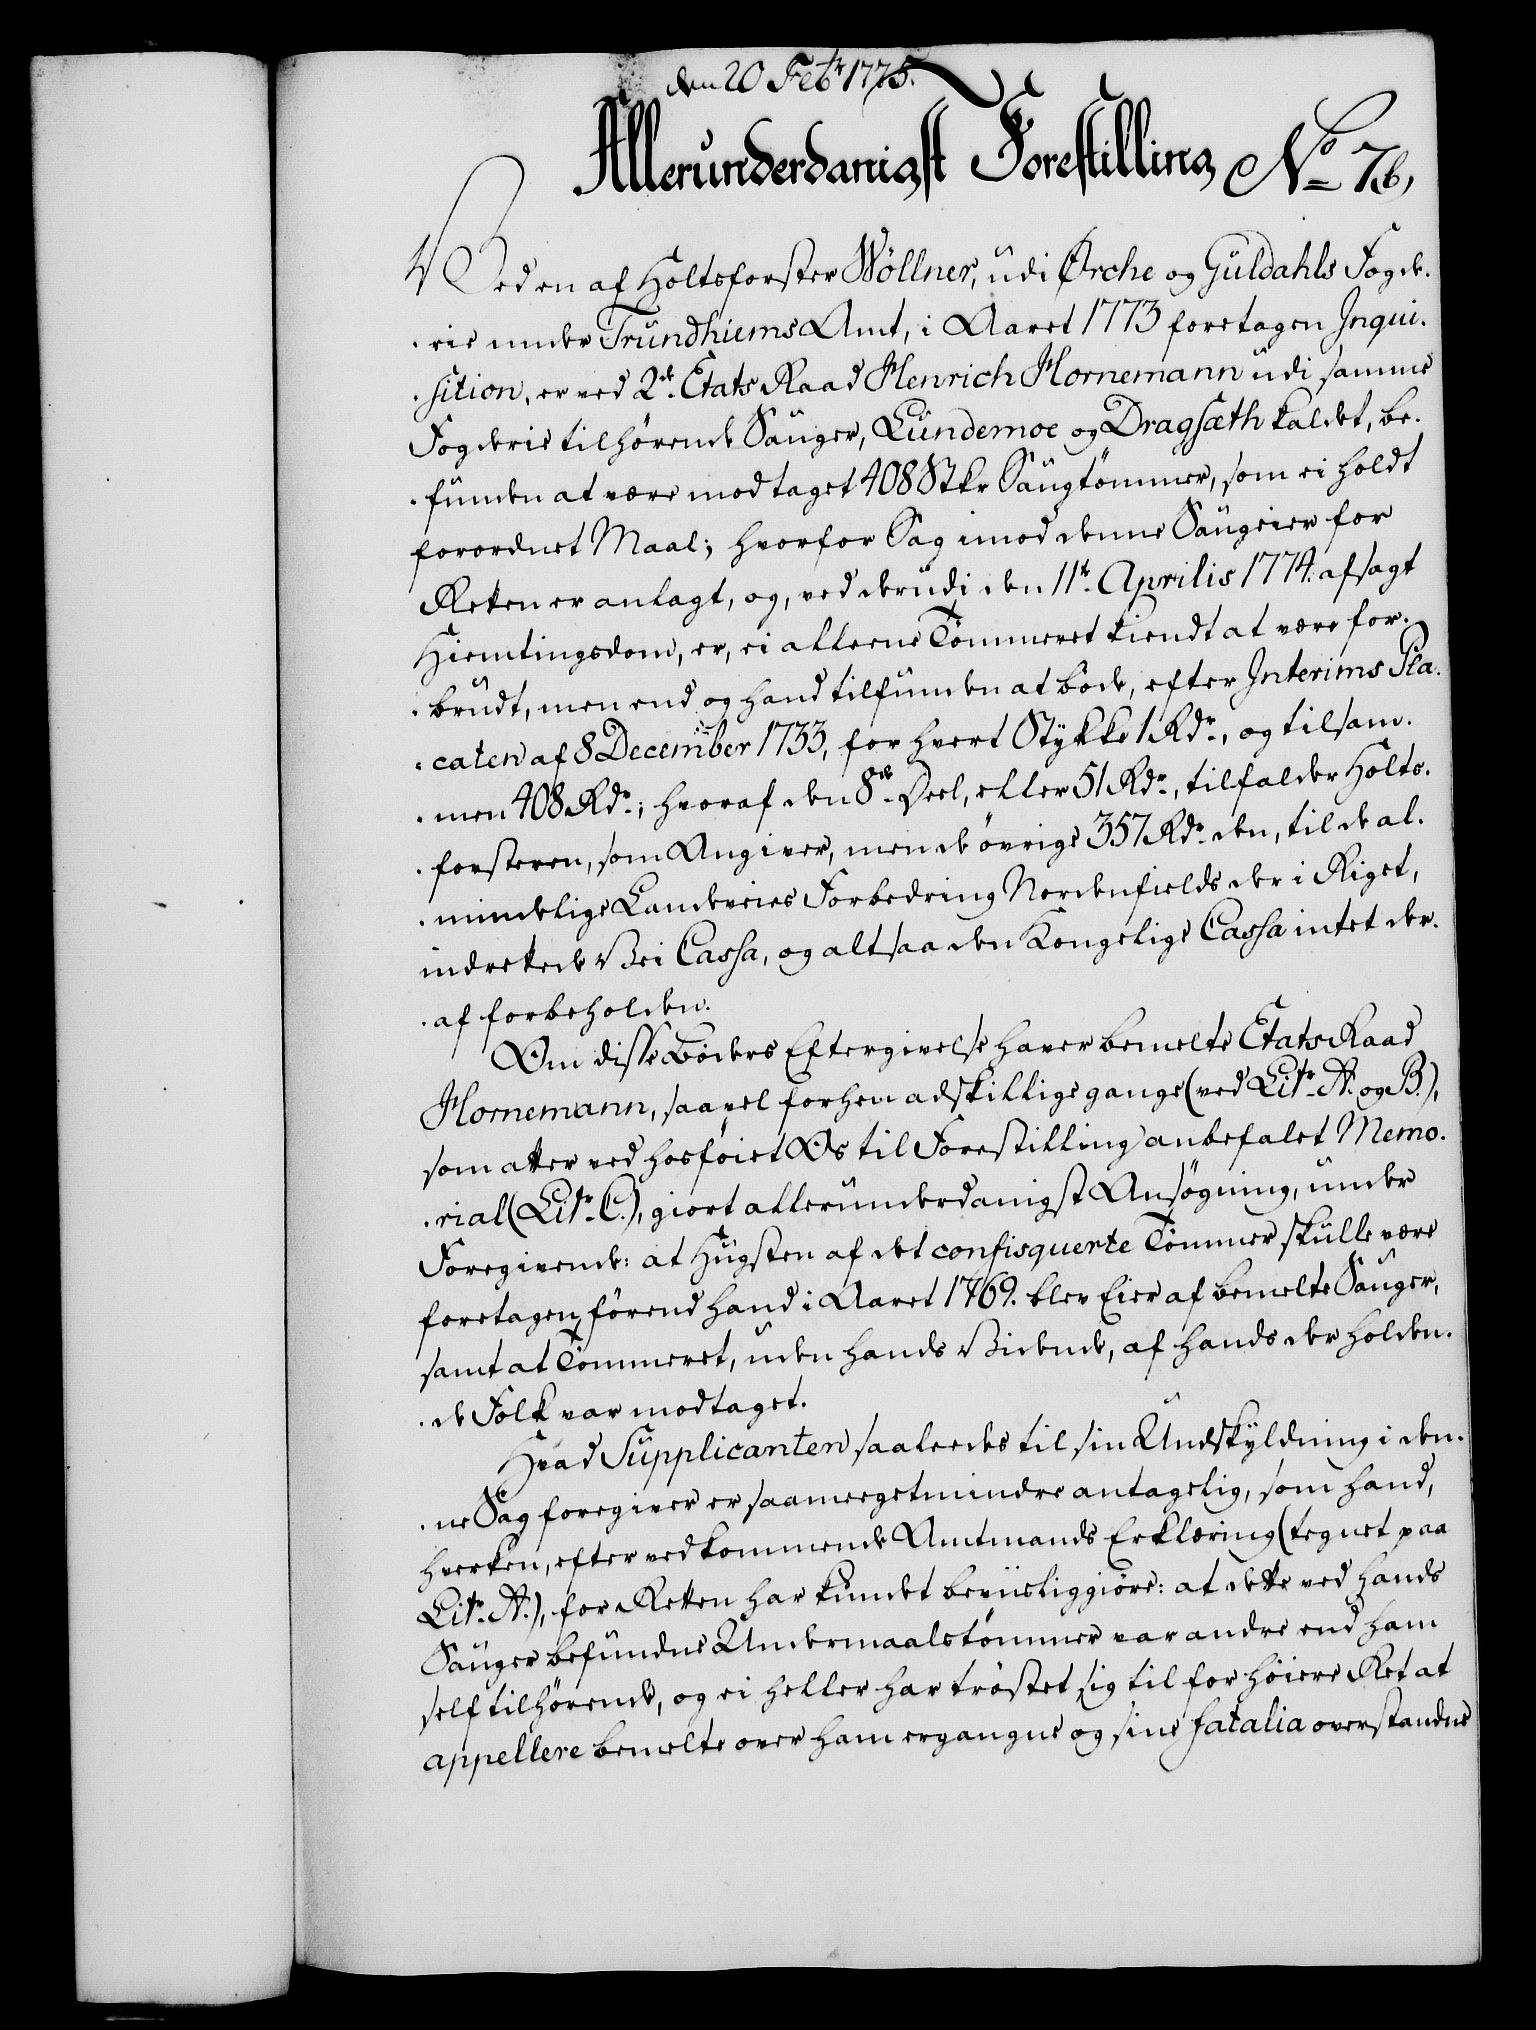 den 20 Febr 1775.
Allerunderdanigst Forestilling No 76,
Ved en af Holtsforster Wöllner, udi Ørche og Guldahls Fogde-
-rie under Trundhiems Amt, i Aaret 1773 foretagen Inqui-
-sition, er ved 2de Etats Raad Henrich Hornemann udi samme
Fogderie tilhørende Sauger, Lundemoe og Dragsæth kaldet, be-
-funden at være modtaget 408 Stkr Saugtømmer, som ei holdt
forordnet Maal; hvorfor Sag imod denne Saugeier for
Retten er anlagt, og, ved derudi den 11te Aprilis 1774. afsagt
Hiemtingsdom, er, ei alleene Tømmeret kiendt at være for-
-brudt, men end og hand tilfunden at bøde, efter Interims Pla-
-caten af 8 December 1733, for hvert Stykke 1 Rdr, og tilsam-
-men 408 Rdr; hvoraf den 8de Deel, eller 51 Rdr, tilfalder Holts-
-forsteren, som Angiver, men de øvrige 357 Rdr den, til de al-
-mindelige Landeveies Forbedring Nordenfields der i Riget,
indrettede Vei Cassa, og altsaa den Kongelige Cassa intet der-
-af forbeholden.
Om disse Bøders Eftergivelse haver bemelte Etats Raad
Hornemann, saavel forhen adskillige gange (ved Litr A. og B.),
som atter ved hosføiet Os til Forestilling anbefalet Memo-
-rial (Litr C.), giort allerunderdanigst Ansøgning, under
Foregivende: at Hugsten af det confisquerte Tømmer skulle være
foretagen, førend hand i Aaret 1769. blev Eier af bemelte Sauger,
samt at Tømmeret, uden hands Vidende, af hands der holden-
-de Folk var modtaget.
Hvad Supplicanten saaledes til sin Undskyldning i den-
-ne Sag foregiver er saameget mindre antagelig, som hand,
hverken, efter vedkommende Amtmands Erklæring (tegnet paa
Litr A.), for Retten har kundet beviisliggiøre: at dette ved hands
Sauger befundne Undermaalstømmer var andre end ham
self tilhørende, og ei heller har trøstet sig til for høiere Ret at
appellere bemelte over ham ergangne og sine fatalia overstandne